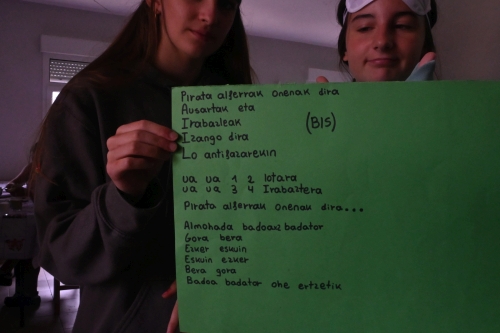 Pirata alferrak onenak dira
Ausartak eta
Irabazleak (BIS)
Izango dira
Lo antifazarekin
ua ua 1 2 lotara
ua ua 3 4 Irabaztera
Pirata alferrak onenak dira...
Almohada badoaz badator
Gora bera
Ezker eskuin
Eskuin ezker
Bera gora
Badoa badator ohe ertzetik